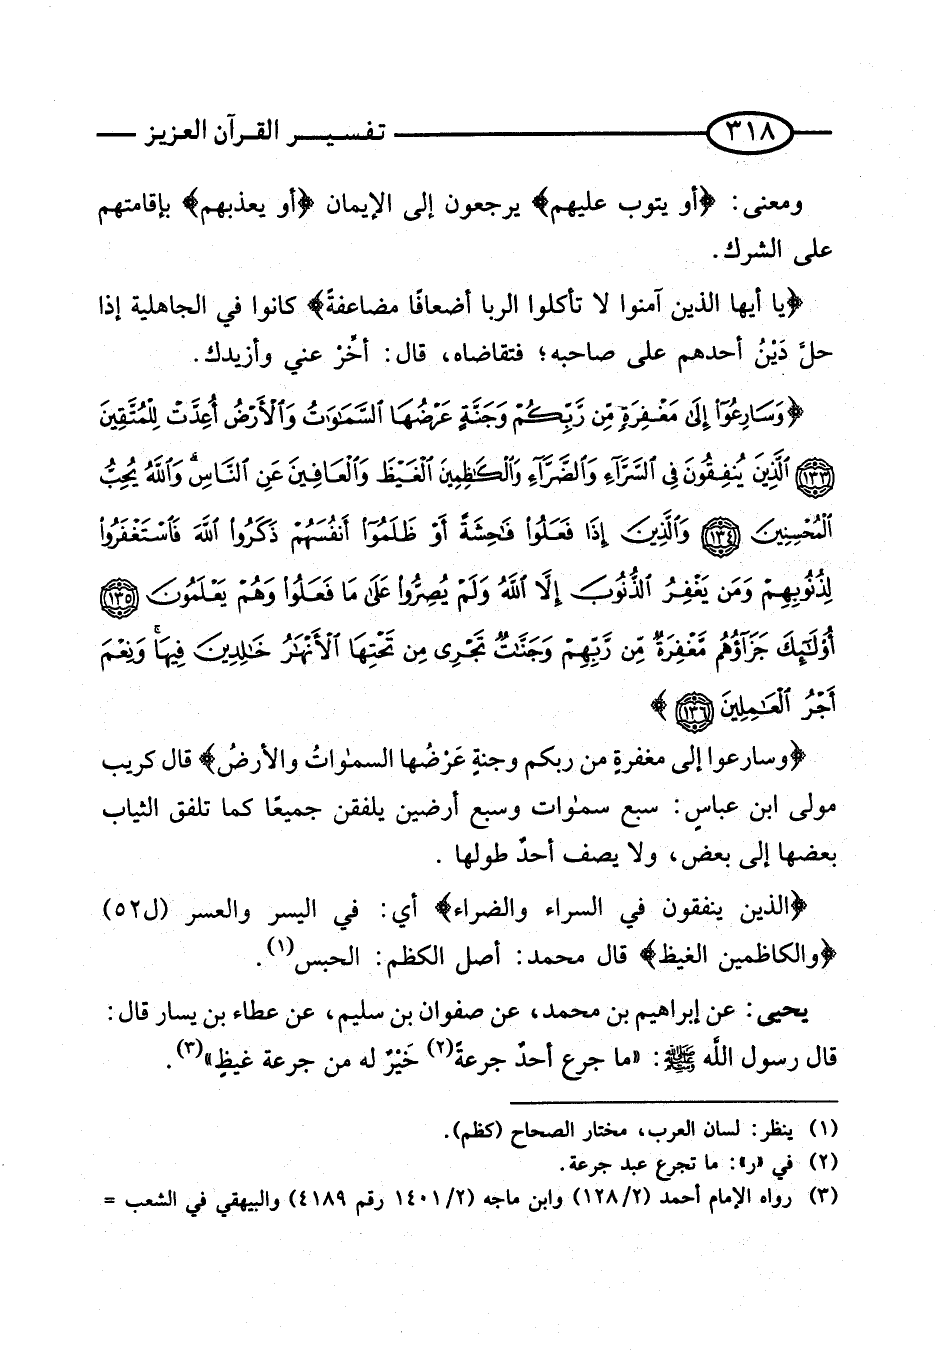 ٣١٨ تفسير القرآن العزيز
ومعنى: ﴿أو يتوب عليهم﴾ يرجعون إلى الإيمان ﴿أو يعذبهم﴾ بإقامتهم
على الشرك.
﴿يا أيها الذين آمنوا لا تأكلوا الربا أضعافًا مضاعفةً﴾ كانوا في الجاهلية إذا
حلَّ دَيْنُ أحدهم على صاحبه؛ فتقاضاه، قال: أخِّرْ عني وأزيدك.
﴿وَسَارِعُوٓا۟ إِلَىٰ مَغْفِرَةٍ مِّن رَّبِّكُمْ وَجَنَّةٍ عَرْضُهَا ٱلسَّمَٰوَٰتُ وَٱلْأَرْضُ أُعِدَّتْ لِلْمُتَّقِينَ
١٣٣ ٱلَّذِينَ يُنفِقُونَ فِى ٱلسَّرَّآءِ وَٱلضَّرَّآءِ وَٱلْكَٰظِمِينَ ٱلْغَيْظَ وَٱلْعَافِينَ عَنِ ٱلنَّاسِۗ وَٱللَّهُ يُحِبُّ
ٱلْمُحْسِنِينَ ١٣٤ وَٱلَّذِينَ إِذَا فَعَلُوا۟ فَٰحِشَةً أَوْ ظَلَمُوٓا۟ أَنفُسَهُمْ ذَكَرُوا۟ ٱللَّهَ فَٱسْتَغْفَرُوا۟
لِذُنُوبِهِمْ وَمَن يَغْفِرُ ٱلذُّنُوبَ إِلَّا ٱللَّهُ وَلَمْ يُصِرُّوا۟ عَلَىٰ مَا فَعَلُوا۟ وَهُمْ يَعْلَمُونَ ١٣٥
أُو۟لَٰٓئِكَ جَزَآؤُهُم مَّغْفِرَةٌ مِّن رَّبِّهِمْ وَجَنَّٰتٌ تَجْرِى مِن تَحْتِهَا ٱلْأَنْهَٰرُ خَٰلِدِينَ فِيهَاۚ وَنِعْمَ
أَجْرُ ٱلْعَٰمِلِينَ ١٣٦﴾
﴿وسارعوا إلى مغفرةٍ من ربكم وجنةٍ عَرْضُها السمٰواتُ والأرضُ﴾ قال كريب
مولى ابن عباسٍ: سبع سمٰوات وسبع أرضين يلفقن جميعًا كما تلفق الثياب
بعضها إلى بعض، ولا يصف أحدٌ طولها .
﴿الذين ينفقون في السراء والضراء﴾ أي: في اليسر والعسر (ل٥٢)
﴿والكاظمين الغيظ﴾ قال محمد: أصل الكظم: الحبس(١).
يحيى: عن إبراهيم بن محمد، عن صفوان بن سليم، عن عطاء بن يسار قال:
قال رسول اللَّه ﷺ: «ما جرع أحدٌ جرعةً(٢) خَيْرٌ له من جرعة غيظٍ»(٣).
(١) ينظر: لسان العرب، مختار الصحاح (كظم).
(٢) في «ر»: ما تجرع عبد جرعة.
(٣) رواه الإمام أحمد (١٢٨/٢) وابن ماجه (١٤٠١/٢ رقم ٤١٨٩) والبيهقي في الشعب =